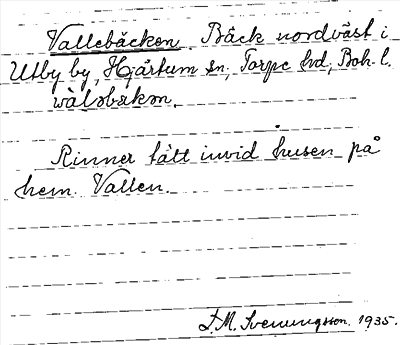 Vallebäcken. Bäck nordväst i
Utby by, Hjärtum sn, Torpe hd, Boh. l.
Rinner tätt invid husen på
hem. Vallen.
S. M. Svenungsson 1935.